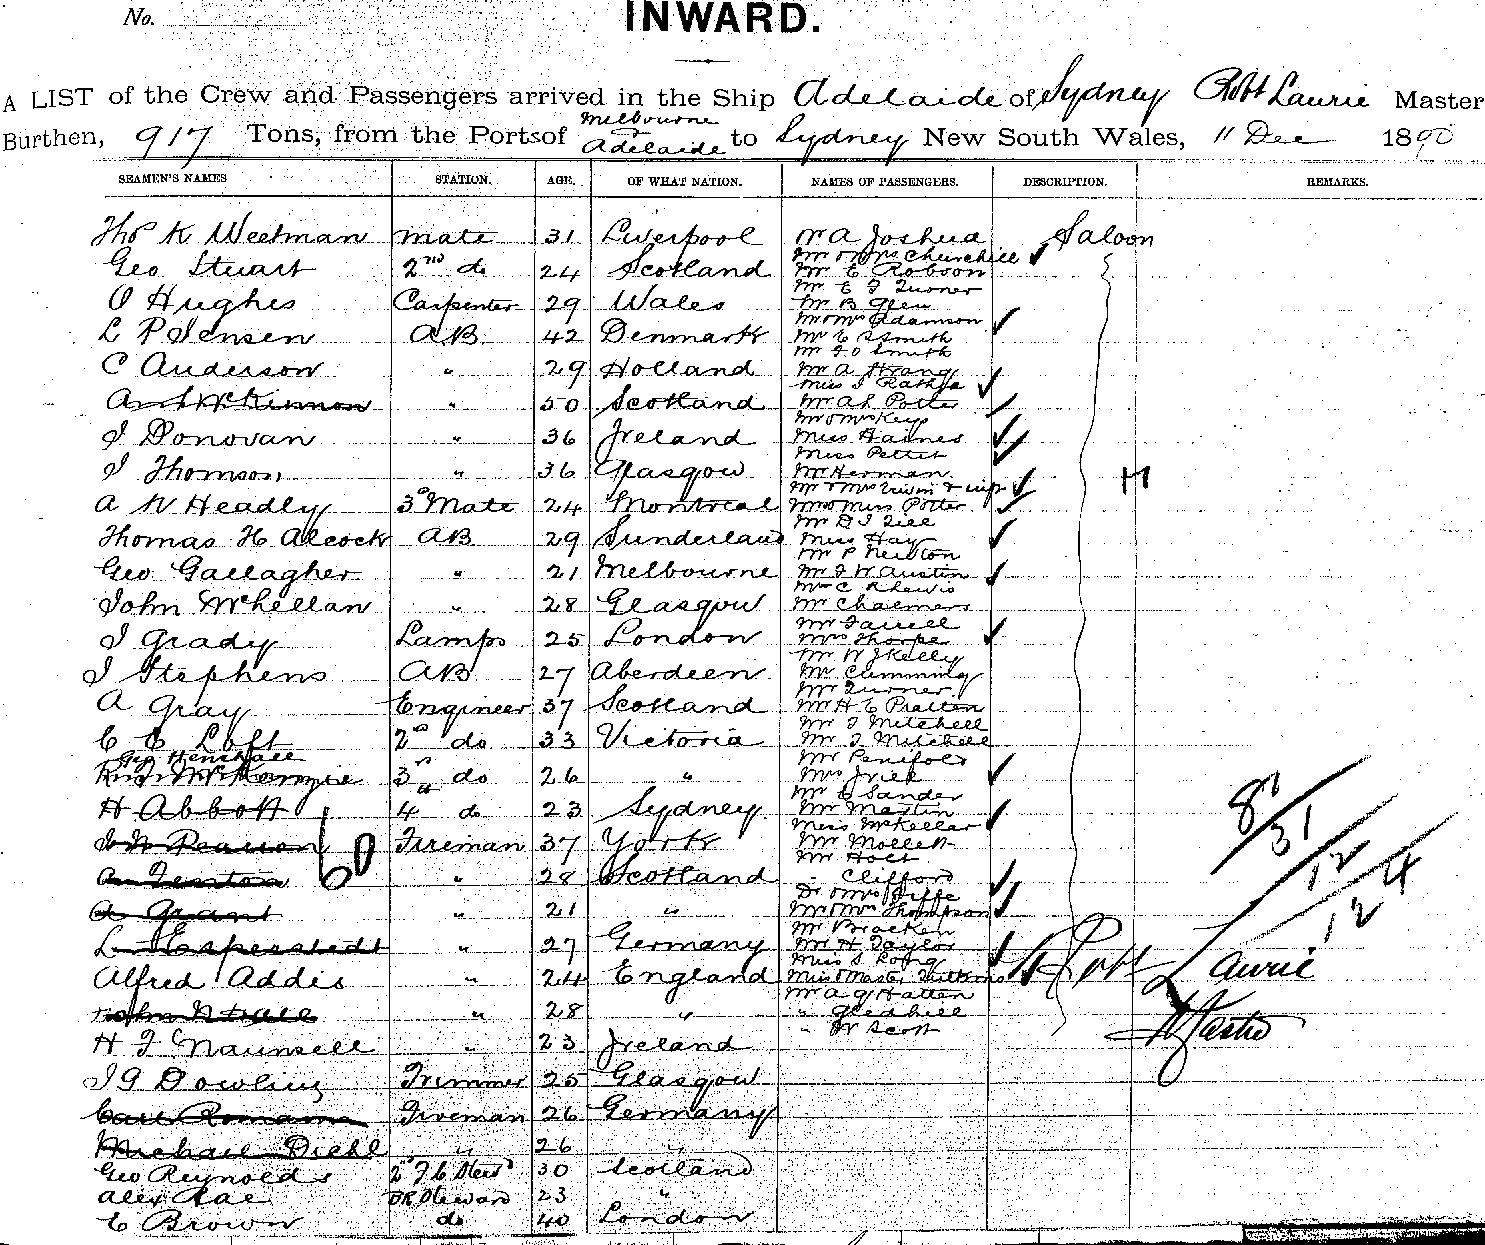 No.
INWARD.
A LIST of the Crew and Passengers arrived in the Ship Adelaide of Sydney Robt Laurie Master
Burthen, 917 Tons, from the Ports of Melbourne Adelaide to Sydney New South Wales, 11 Dec 1890
SEAMEN'S NAMES STATION. AGE. OF WHAT NATION. NAMES OF PASSENGERS. DESCRIPTION. REMARKS.
Thos K Weetman Mate 31 Liverpool W A Joshua Saloon
Mr & Mrs Churchill
Geo Stuart 2nd do 24 Scotland Mr E Robson
Mr E J Turner
O Hughes Carpenter 29 Wales Mr B Glen
Mr & Mrs Adamson
L P Jensen AB 42 Denmark Mr E S Smith
Mr J O Smith
C Anderson " 29 Holland Mr A Strang
Miss J
McKinnon " 50 Scotland Mr A L Potter
Mr & Mrs Keys
J Donovan " 36 Ireland Miss Haines
Miss Pettet
J Thomson " 36 Glasgow Mr Herman
Mr & Mrs
A W Headly 3rd Mate 24 Montreal Miss Potter
Mr D J
Thomas H Alcock AB 29 Sunderland Miss Hay
Mr P Newton
Geo Gallagher " 21 Melbourne Mr J W Austin
John McLellan " 28 Glasgow Mr Chalmers
Mr Farrell
J Grady Lamps 25 London Mrs Thorpe
Mr W J Kelly
J Stephens AB 27 Aberdeen Mr Cumming
Mr Turner
A Gray Engineer 37 Scotland Mr H E Pratten
Mr J Mitchell
C E Loft 2nd do 33 Victoria Mr J Mitchell
Geo Henshall Mr Penfold
McKenzie 3rd do 26 " Mrs
Mr E Sander
H Abbott 4 do 23 Sydney Mr Martin
Miss McKellar
Pearson Fireman 37 York Mr Mollett
Mr Holt
A Fenton " 28 Scotland " Clifford
Dr & Mrs
A Grant " 21 " Mr & Mrs Thompson
Mr Bracken
L Esperstedt " 27 Germany Mr H Taylor
Miss S
Alfred Addis " 24 England Miss & Master
Mr A G Hatten
John " 28 " " Gledhill
" W Scott
H J Maunsell " 23 Ireland
J G Dowling Trimmer 25 Glasgow
Carl Romann Fireman 26 Germany
Michael Diehl " 26 "
Geo Reynolds 30 Scotland
Alex Rae Steward 23 "
E Brown do 40 London
H
60
8/31
12
124
Robt Laurie
Master